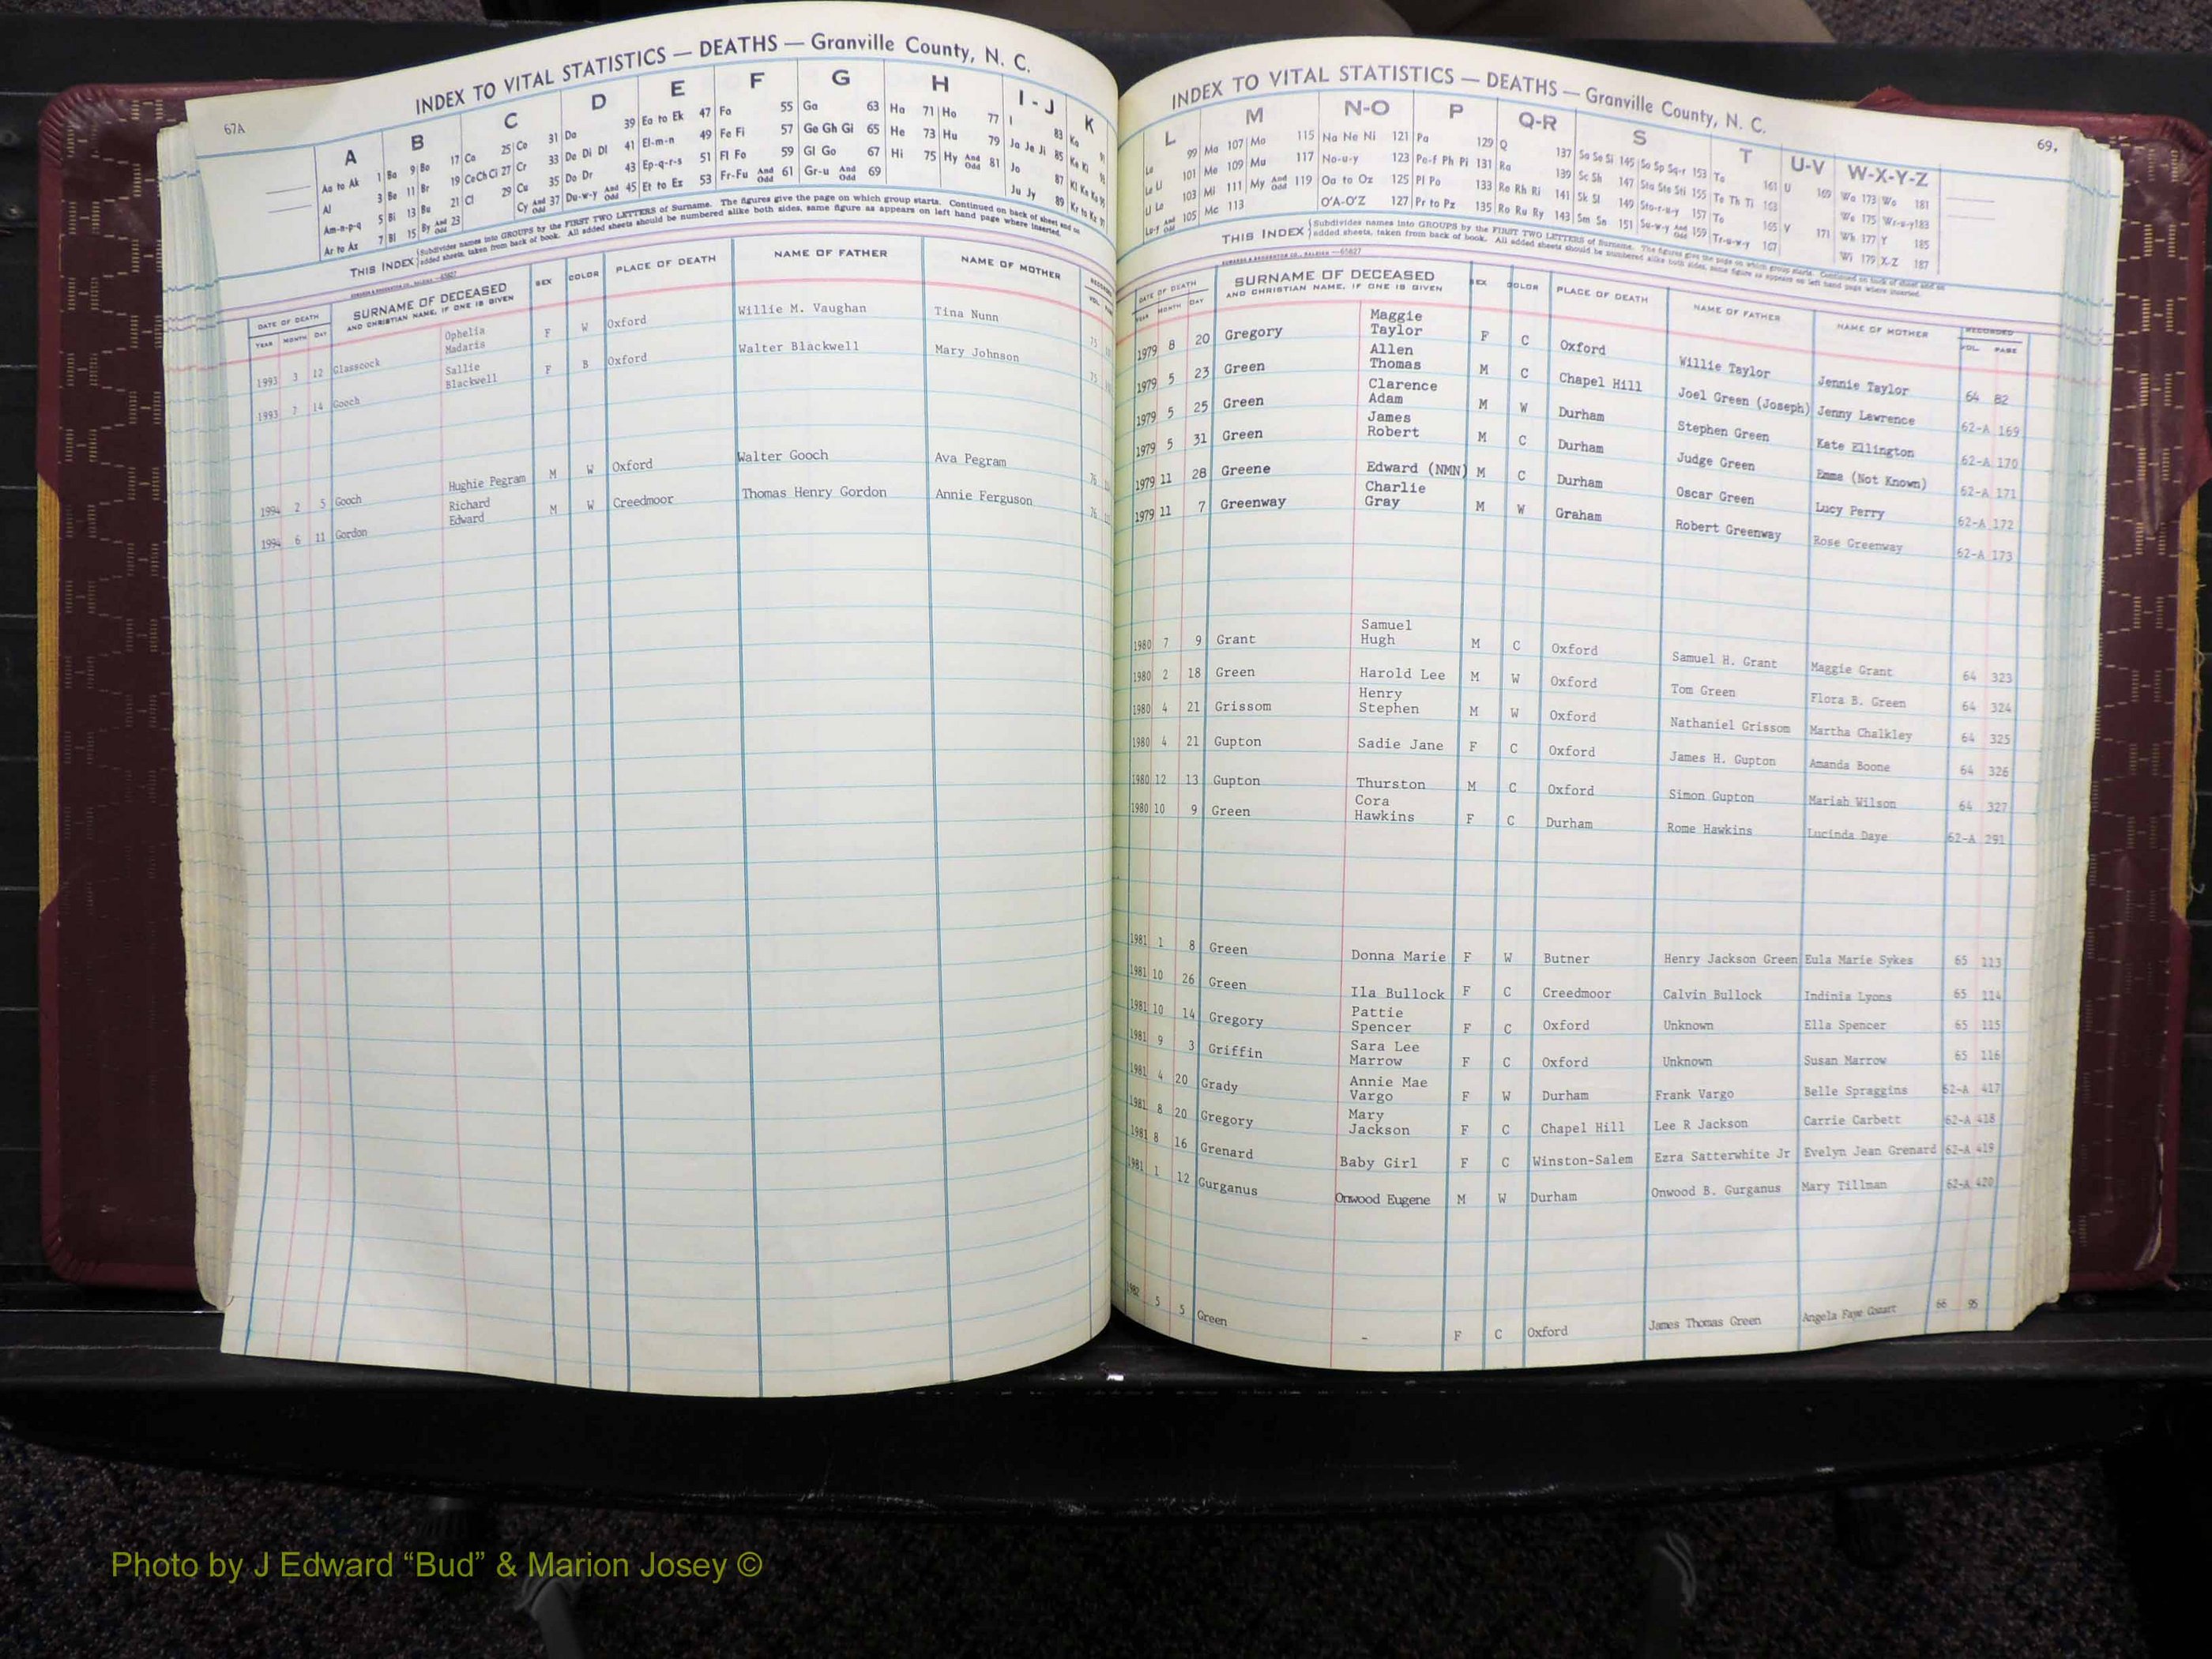 67A
INDEX TO VITAL STATISTICS — DEATHS — Granville County, N. C.
A B C D E F G H I - J K
Aa to Ak 1 Ba 9 Bo 17 Ca 25 Co 31 Da 39 Ea to Ek 47 Fa 55 Ga 63 Ha 71 Ho 77 I 83 Ka
Al 3 Be 11 Br 19 Ce Ch Ci 27 Cr 33 De Di Dl 41 El-m-n 49 Fe Fi 57 Ge Gh Gi 65 He 73 Hu 79 Ja Je Ji 85 Ke Ki
Am-n-p-q 5 Bi 13 Bu 21 Cl 29 Cu 35 Do Dr 43 Ep-q-r-s 51 Fl Fo 59 Gl Go 67 Hi 75 Hy And Odd 81 Jo 87
Ar to Az 7 Bl 15 By And Odd 23 Cy And Odd 37 Du-w-y And Odd 45 Et to Ez 53 Fr-Fu And Odd 61 Gr-u And Odd 69 Ju Jy 89
THIS INDEX Subdivides names into GROUPS by the FIRST TWO LETTERS of Surname. The figures give the page on which group starts. Continued on back of sheet and on
added sheets, taken from back of book. All added sheets should be numbered alike both sides, same figure as appears on left hand page where inserted.
DATE OF DEATH SURNAME OF DECEASED AND CHRISTIAN NAME, IF ONE IS GIVEN SEX COLOR PLACE OF DEATH NAME OF FATHER NAME OF MOTHER
YEAR MONTH DAY
1993 3 12 Glasscock Ophelia Madaris F W Oxford Willie M. Vaughan Tina Nunn 75
1993 7 14 Gooch Sallie Blackwell F B Oxford Walter Blackwell Mary Johnson 75
1994 2 5 Gooch Hughie Pegram M W Oxford Walter Gooch Ava Pegram 76
1994 6 11 Gordon Richard Edward M W Creedmoor Thomas Henry Gordon Annie Ferguson 76
69,
INDEX TO VITAL STATISTICS — DEATHS — Granville County, N. C.
L M N-O P Q-R S T U-V W-X-Y-Z
La 99 Ma 107 Mo 115 Na Ne Ni 121 Pa 129 Q 137 Sa Se Si 145 So Sp Sq-r 153 Ta 161 U 169 Wa 173 Wo 181
Le Li 101 Me 109 Mu 117 No-u-y 123 Pe-f Ph Pi 131 Ra 139 Sc Sh 147 Sta Ste Sti 155 Te Th Ti 163 We 175 Wr-u-y 183
Ll Lo 103 Mi 111 My And Odd 119 Oa to Oz 125 Pl Po 133 Re Rh Ri 141 Sk Sl 149 Sto-r-u-y 157 To 165 V 171 Wh 177 Y 185
Lu-y And Odd 105 Mc 113 O'A-O'Z 127 Pr to Pz 135 Ro Ru Ry 143 Sm Sn 151 Su-w-y And Odd 159 Tr-u-w-y 167 Wi 179 X-Z 187
THIS INDEX Subdivides names into GROUPS by the FIRST TWO LETTERS of Surname. The figures give the page on which group starts. Continued on back of sheet and on
added sheets, taken from back of book. All added sheets should be numbered alike both sides, same figure as appears on left hand page where inserted.
DATE OF DEATH SURNAME OF DECEASED AND CHRISTIAN NAME, IF ONE IS GIVEN SEX COLOR PLACE OF DEATH NAME OF FATHER NAME OF MOTHER RECORDED
YEAR MONTH DAY VOL. PAGE
1979 8 20 Gregory Maggie Taylor F C Oxford Willie Taylor Jennie Taylor 64 82
1979 5 23 Green Allen Thomas M C Chapel Hill Joel Green (Joseph) Jenny Lawrence 62-A 169
1979 5 25 Green Clarence Adam M W Durham Stephen Green Kate Ellington 62-A 170
1979 5 31 Green James Robert M C Durham Judge Green Emma (Not Known) 62-A 171
1979 11 28 Greene Edward (NMN) M C Durham Oscar Green Lucy Perry 62-A 172
1979 11 7 Greenway Charlie Gray M W Graham Robert Greenway Rose Greenway 62-A 173
1980 7 9 Grant Samuel Hugh M C Oxford Samuel H. Grant Maggie Grant 64 323
1980 2 18 Green Harold Lee M W Oxford Tom Green Flora B. Green 64 324
1980 4 21 Grissom Henry Stephen M W Oxford Nathaniel Grissom Martha Chalkley 64 325
1980 4 21 Gupton Sadie Jane F C Oxford James H. Gupton Amanda Boone 64 326
1980 12 13 Gupton Thurston M C Oxford Simon Gupton Mariah Wilson 64 327
1980 10 9 Green Cora Hawkins F C Durham Rome Hawkins Lucinda Daye 62-A 291
1981 1 8 Green Donna Marie F W Butner Henry Jackson Green Eula Marie Sykes 65 113
1981 10 26 Green Ila Bullock F C Creedmoor Calvin Bullock Indinia Lyons 65 114
1981 10 14 Gregory Pattie Spencer F C Oxford Unknown Ella Spencer 65 115
1981 9 3 Griffin Sara Lee Marrow F C Oxford Unknown Susan Marrow 65 116
1981 4 20 Grady Annie Mae Vargo F W Durham Frank Vargo Belle Spraggins 62-A 417
1981 8 20 Gregory Mary Jackson F C Chapel Hill Lee R Jackson Carrie Carbett 62-A 418
1981 8 16 Grenard Baby Girl F C Winston-Salem Ezra Satterwhite Jr Evelyn Jean Grenard 62-A 419
1981 1 12 Gurganus Onwood Eugene M W Durham Onwood B. Gurganus Mary Tillman 62-A 420
1982 5 5 Green - F C Oxford James Thomas Green Angela Faye Cozart 66 95
Photo by J Edward “Bud” & Marion Josey ©